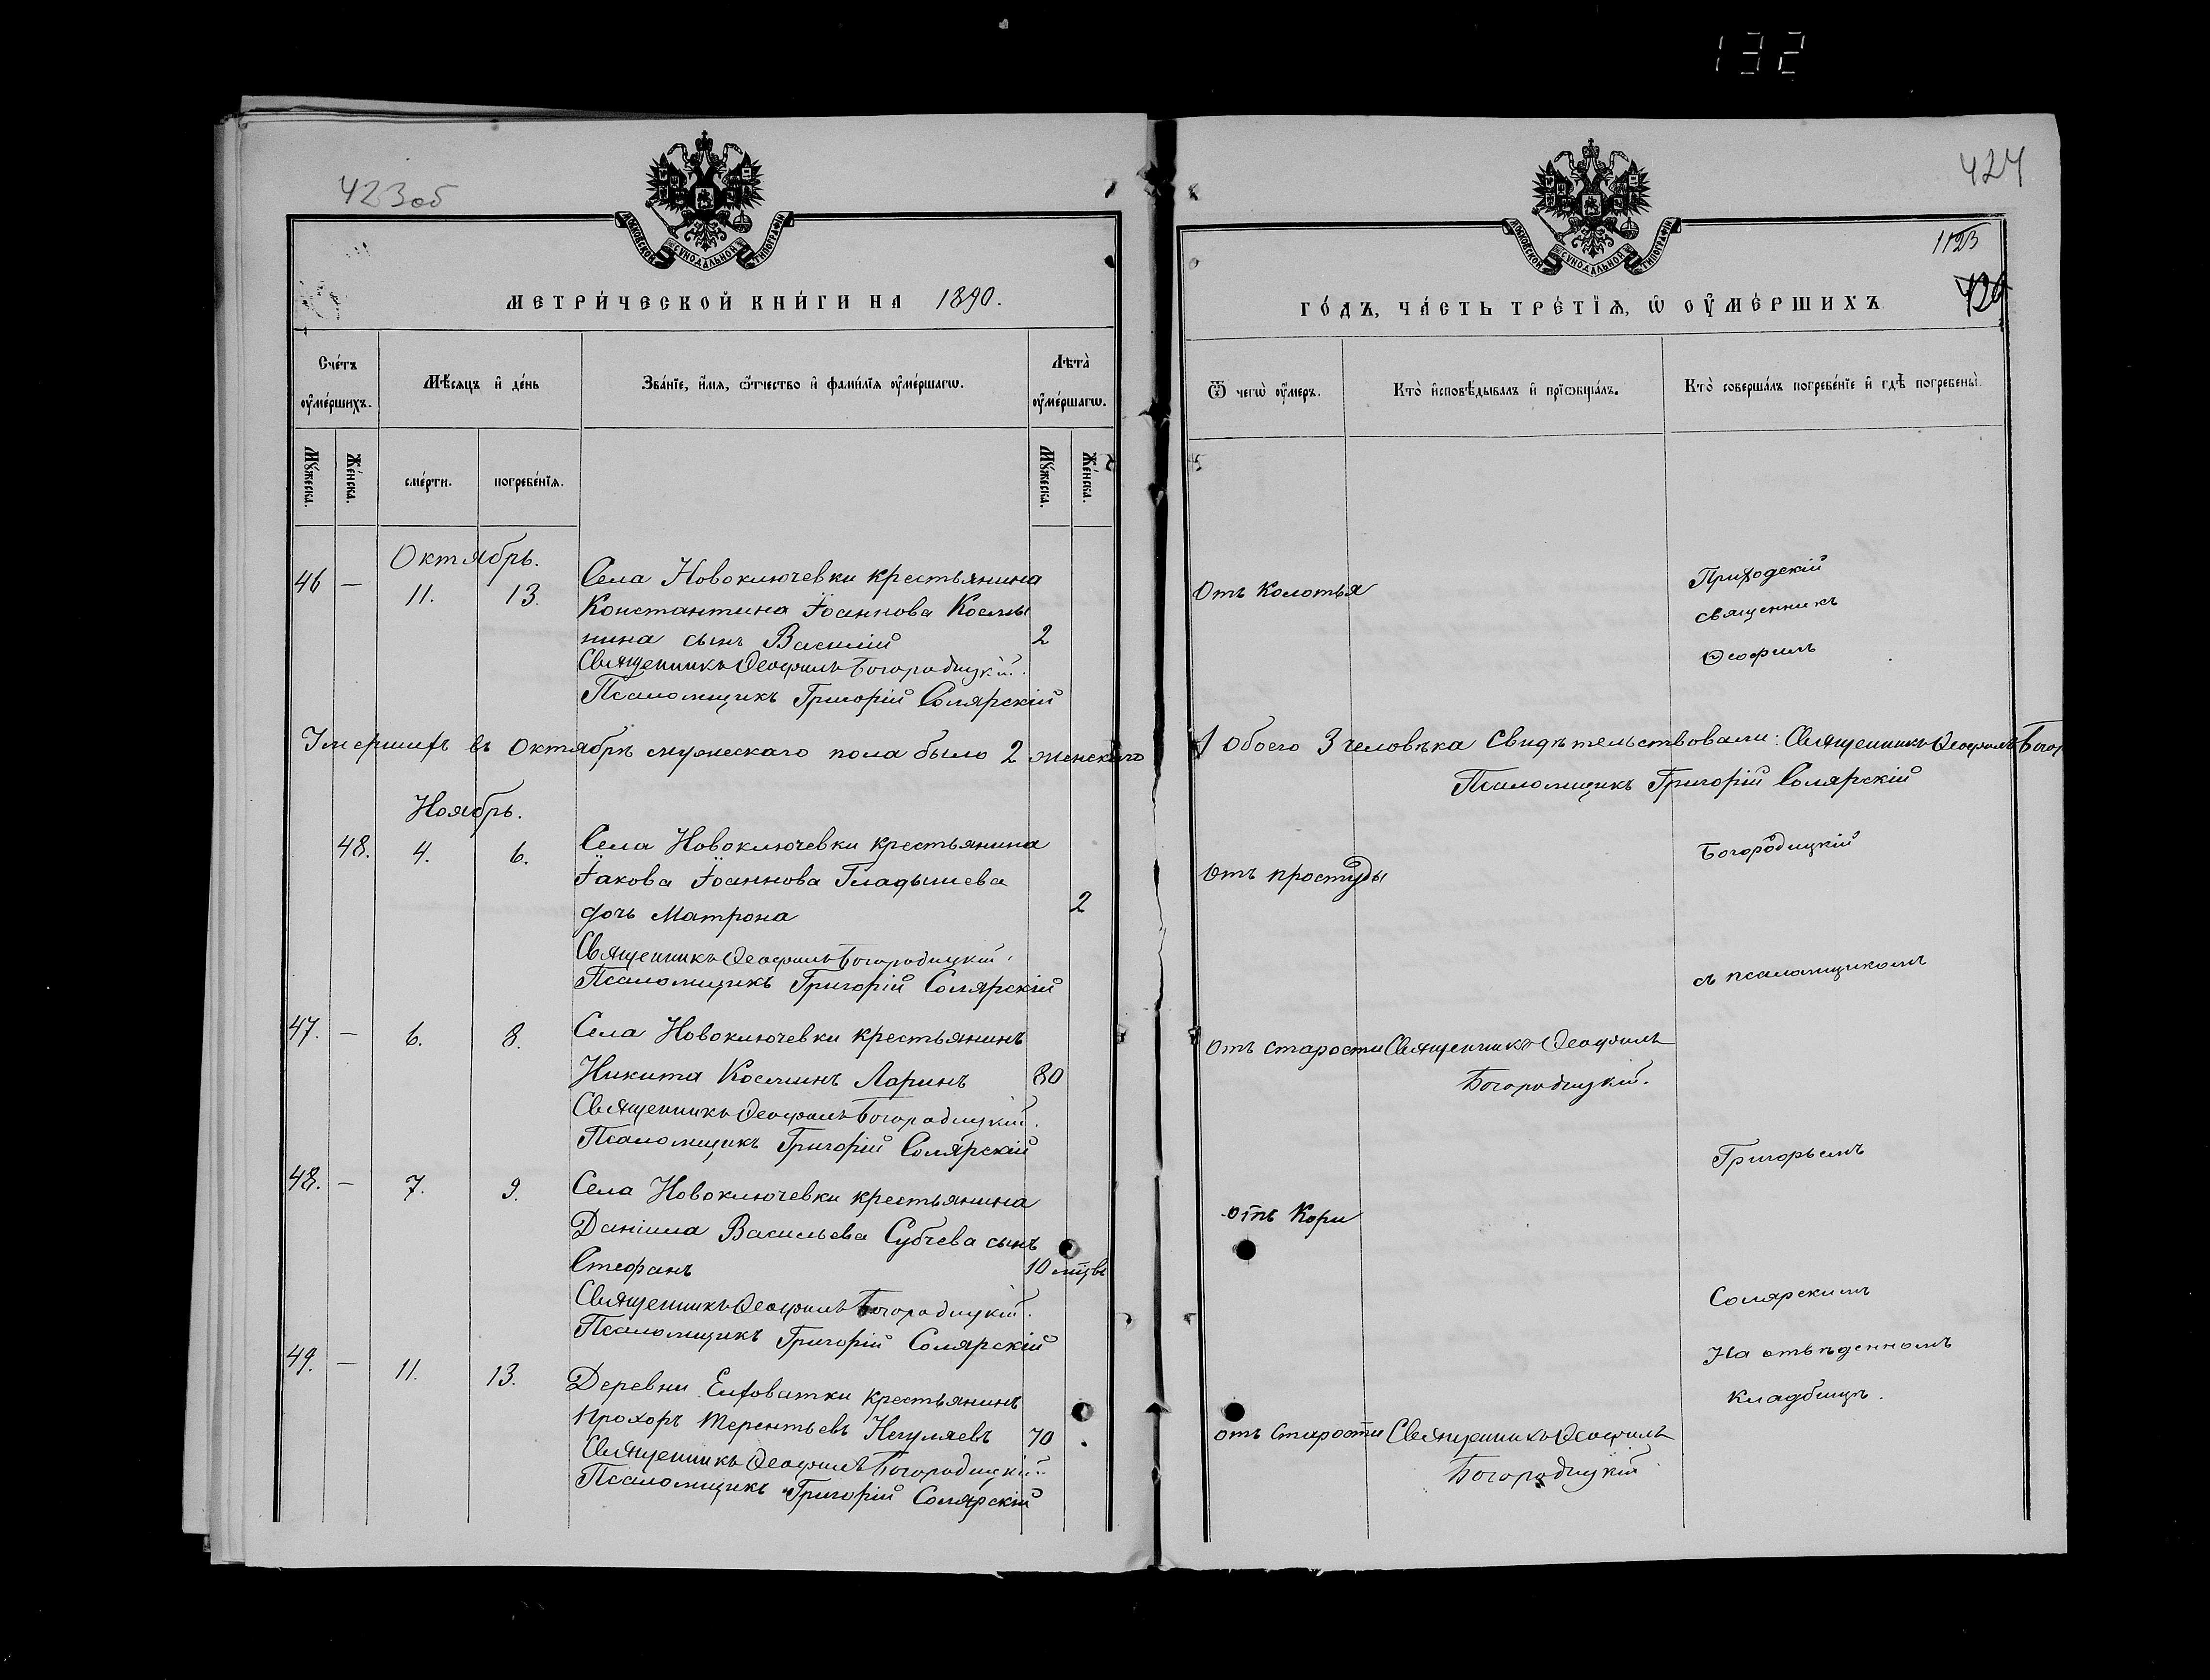 132
423об
МОСКОВСКОЙ СѴНОДАЛЬНОЙ ТИПОГРАФІИ
МЕТРИ́ЧЕСКОЙ КНИ́ГИ НА 1890.
Сче́тъ оу҆ме́ршихъ.
Мѣ́сяцъ и҆ де́нь
Зва́нїе, и҆́мя, ѻ҆́тчество и҆ фами́лїя оу҆ме́ршагѡ.
Лѣта̀ оу҆ме́ршагѡ.
Мꙋ́жеска.
Же́нска.
сме́рти.
погребе́нїя.
Мꙋ́жеска.
Же́нска.
Октябрь.
46 — 11. 13. Села Новоключевки крестьянина
Константина Іоаннова Косми
нина сынъ Василій 2
Священникъ Ѳеофилъ Богородицкій.
Псаломщикъ Григорій Солярскій
Умершихъ въ Октябрѣ мужескаго пола было 2 женскаго
Ноябрь.
48. 4. 6. Села Новоключевки крестьянина
Іакова Іоаннова Гладышева
дочь Матрона 2
Священникъ Ѳеофилъ Богородицкій.
Псаломщикъ Григорій Солярскій
47. — 6. 8. Села Новоключевки крестьянинъ
Никита Косминъ Ларинъ 80
Священникъ Ѳеофилъ Богородицкій.
Псаломщикъ Григорій Солярскій
48. — 7. 9. Села Новоключевки крестьянина
Даніила Васильева Субчева сынъ
Стефанъ 10 мцвъ
Священникъ Ѳеофилъ Богородицкій.
Псаломщикъ Григорій Солярскій
49. — 11. 13. Деревни Елховатки крестьянинъ
Прохоръ Терентьевъ Негуляевъ 70
Священникъ Ѳеофилъ Богородицкій.
Псаломщикъ Григорій Солярскій
424
МОСКОВСКОЙ СѴНОДАЛЬНОЙ ТИПОГРАФІИ
1123
ГО́ДЪ, ЧА́СТЬ ТРЕ́ТЇЯ, Ѡ҆ ОУ҆МЕ́РШИХЪ
Ѿ чегѡ̀ оу҆́меръ.
Кто̀ и҆сповѣ́дывалъ и҆ прїѡбща́лъ.
Кто̀ соверша́лъ погребе́нїе и҆ гдѣ̀ погребены̀.
Отъ колотья
Приходскій
священникъ
Ѳеофилъ
1 обоего 3 человѣка Свидѣтельствовали: Священникъ Ѳеофилъ Богор
Псаломщикъ Григорій Солярскій
Богородицкій
Отъ простуды
съ псаломщикомъ
отъ старости Священникъ Ѳеофилъ
Богородицкій.
Григорьемъ
отъ Кори
Солярскимъ
На отвѣденномъ
кладбищѣ.
отъ Старости Священникъ Ѳеофилъ
Богородицкій